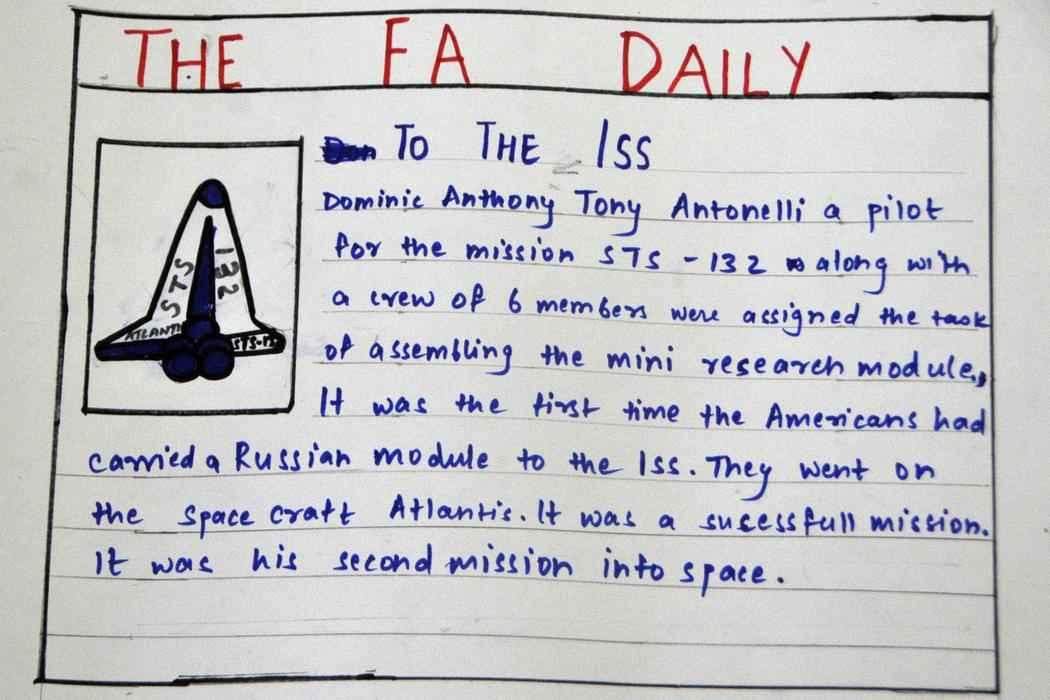 THE FA DAILY
TO THE ISS
Dominic Anthony Tony Antonelli a pilot
for the mission STS - 132 along with
a crew of 6 members were assigned the task
of assembling the mini research module.,
It was the first time the Americans had
carried a Russian module to the Iss. They went on
the space craft Atlantis. It was a sucessfull mission.
It was his second mission into space.
STS
132
ATLANTIS